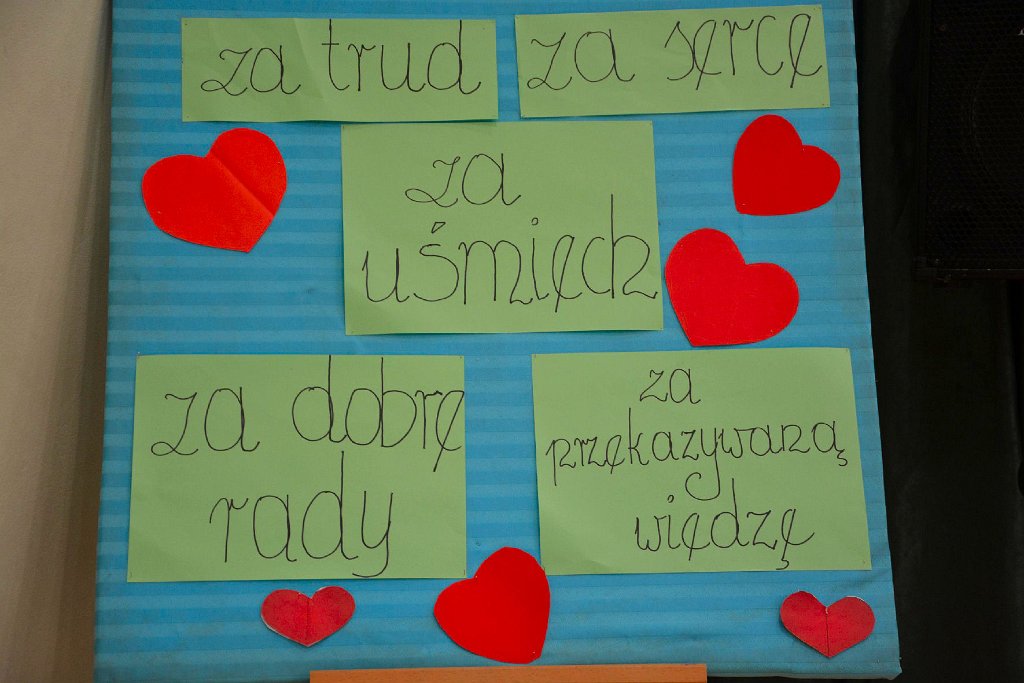 za trud
za serce
za
uśmiech
za dobre
rady
za
przekazywaną
wiedzę